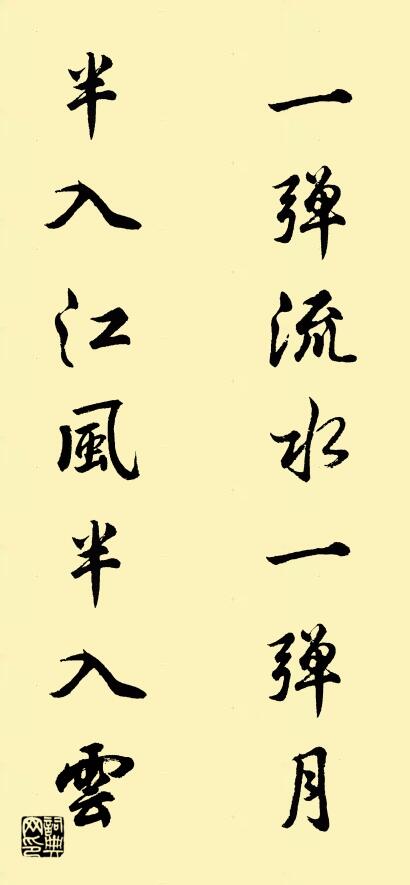 一弹流水一弹月
半入江風半入雲
詞典网印